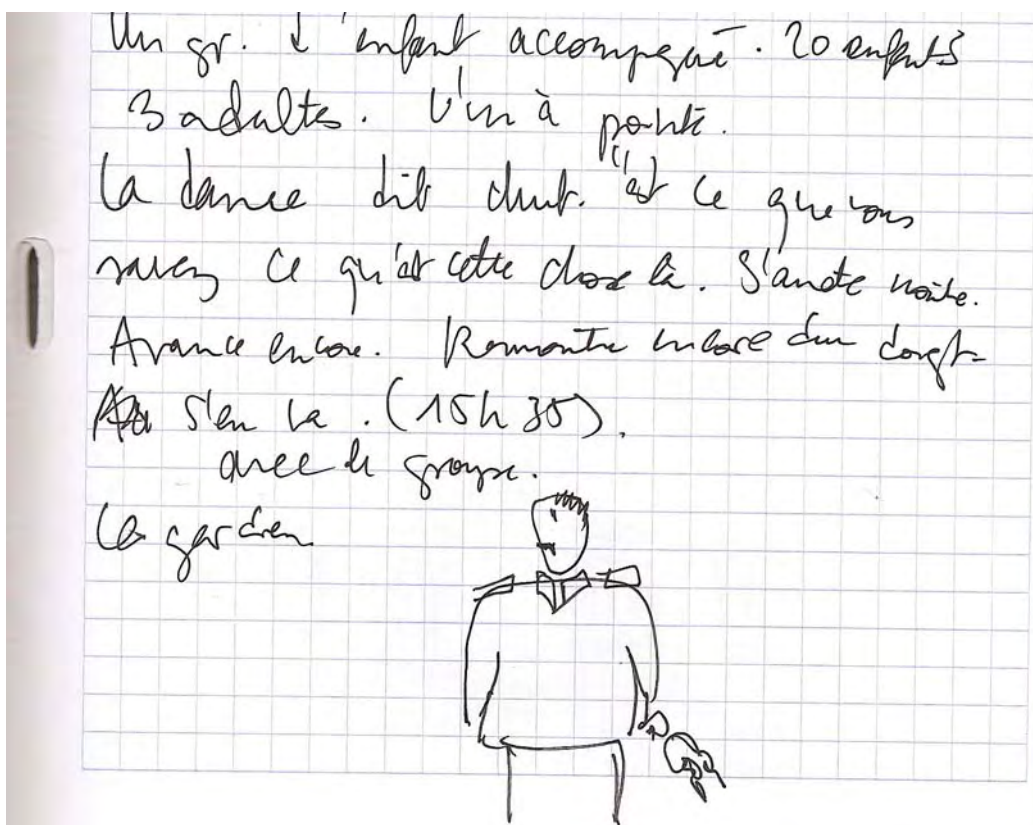 Un gr. d'enfant accompagné. 20 enfants
3 adultes. L'un à pointé.
La dame dit chut. "est ce que vous
savez ce qu'est cette chose là. S'arrête
Avance encore. Remontre encore d'un doigt
s'en va. (15h30).
avec le groupe.
Le gardien